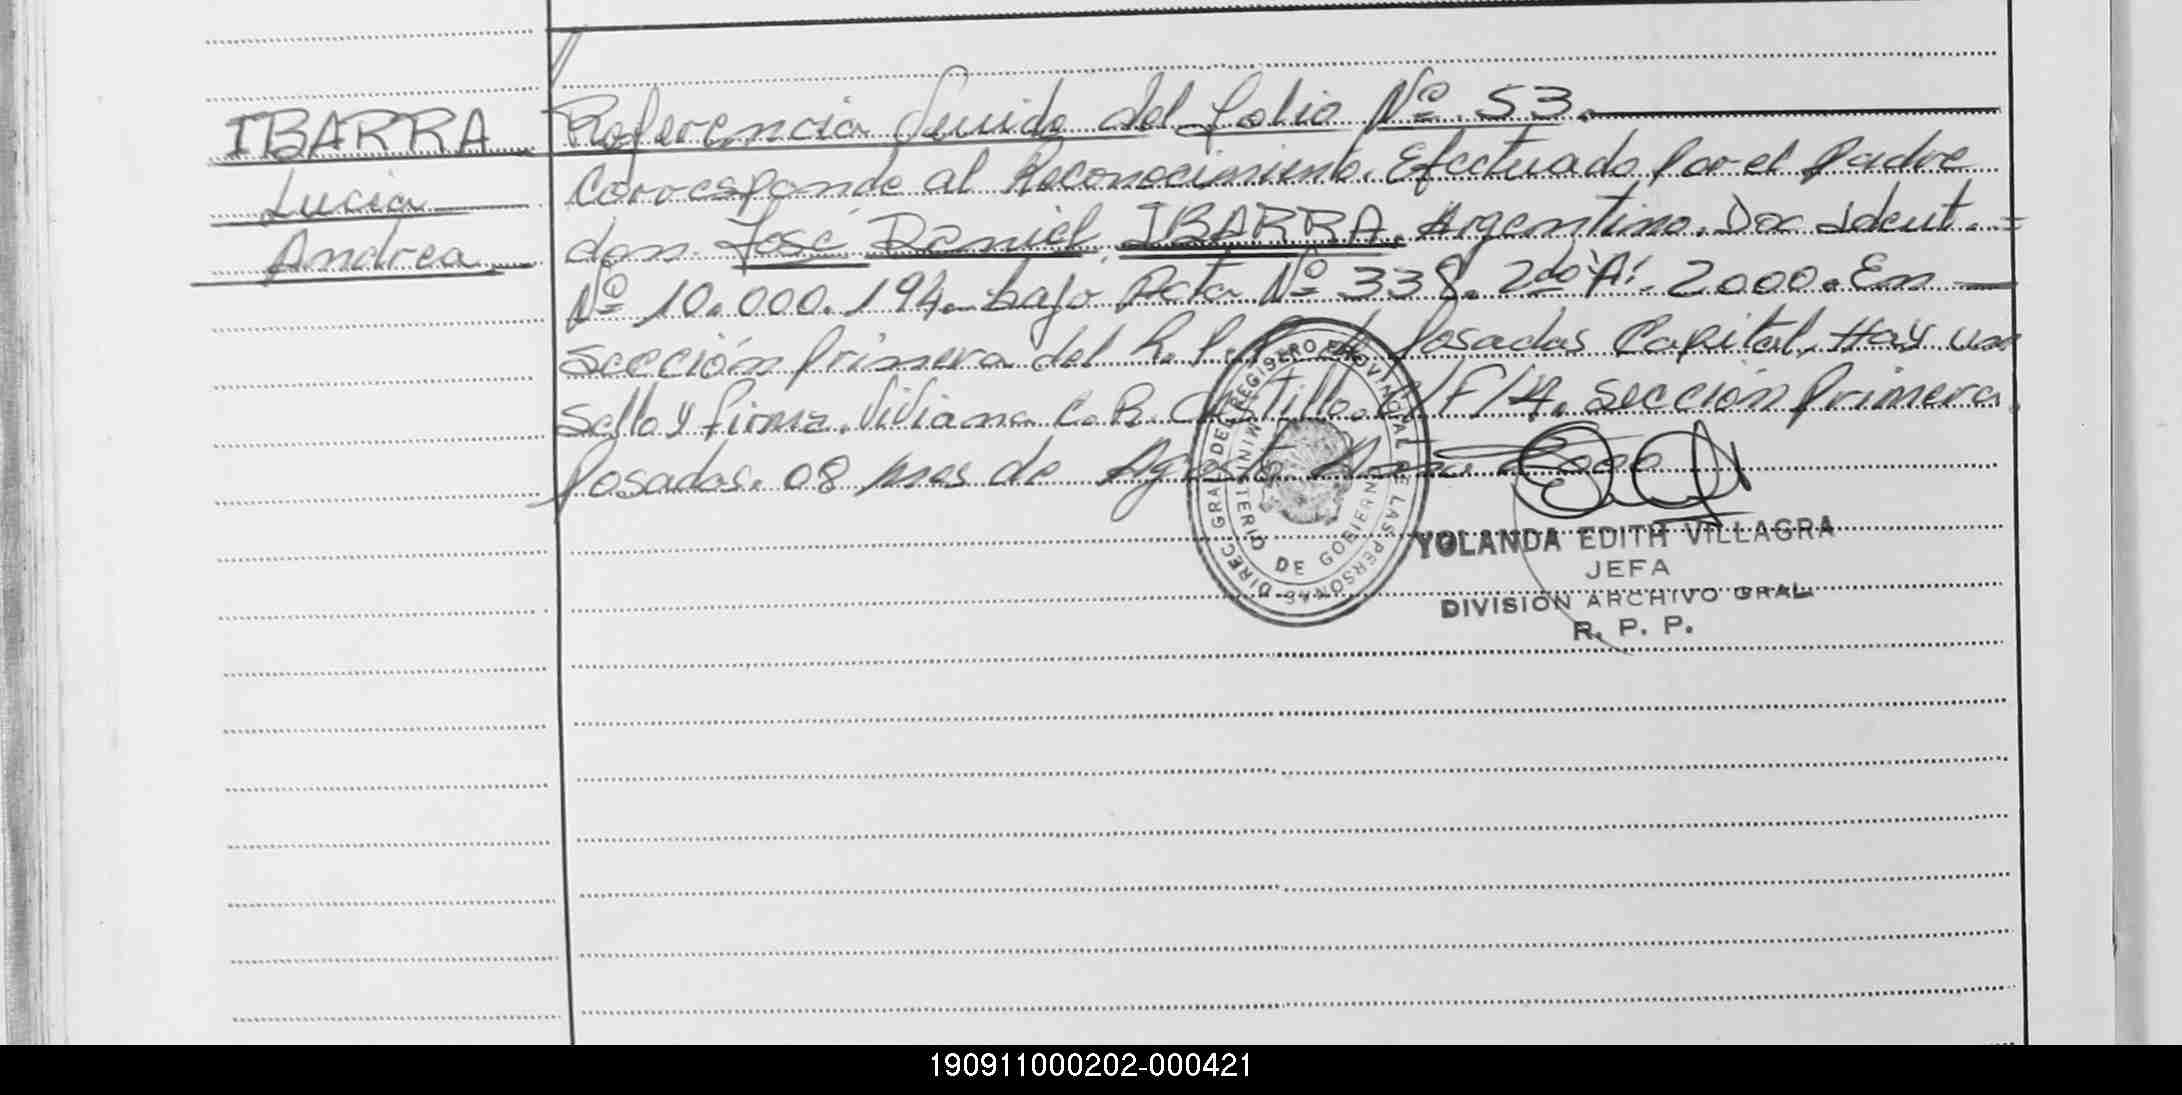 IBARRA
Lucia
Andrea
Referencia del folio Nº. 53.
Corresponde al Reconocimiento. Efectuado Por el Padre
don. José Daniel IBARRA. Argentino. Doc Ident. =
Nº 10.000.194. bajo Acta Nº 338. 2do "A". 2000. En
sección Primera del R. P. Posadas Capital. Hay un
Sello y firma. Viviana C. B. Castillo. /F/4. sección Primera
Posadas. 08 mes de Agosto 2000
DIREC. GRAL. DEL REGISTRO PROVINCIAL DE LAS PERSONAS
MINISTERIO DE GOBIERNO
YOLANDA EDITH VILLAGRA
JEFA
DIVISIÓN ARCHIVO GRAL.
R. P. P.
190911000202-000421